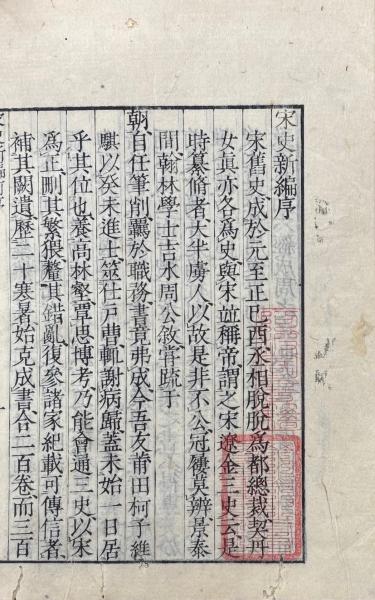 宋史新編序
宋舊史成於元至正己酉丞相脫脫為都總裁契丹
女眞亦各為史與宋並稱帝謂之宋遼金三史云是
時纂脩者大半虜人以故是非不公冠屨莫辨景泰
間翰林學士吉水周公敘嘗疏于
朝自任筆削羈於職務書竟弗成今吾友莆田柯子維
騏以癸未進士筮仕戶曹輒謝病歸蓋未始一日居
乎其位也養高林壑覃思博考乃能會通三史以宋
為正刪其繁猥釐其錯亂復參諸家紀載可傳信者
補其闕遺歷二十寒暑始克成書合二百卷而三百